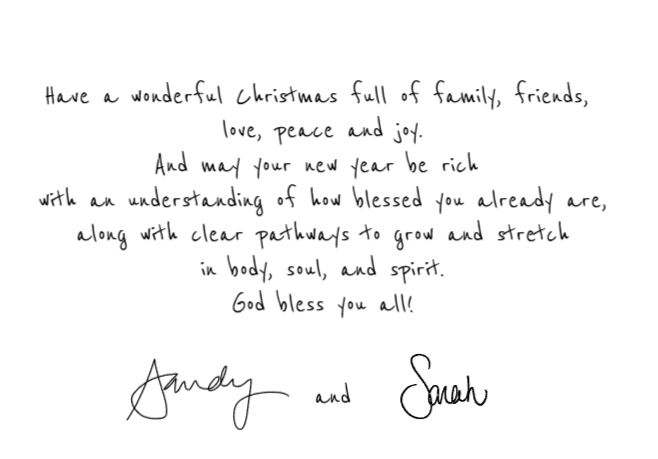 Have a wonderful Christmas full of family, friends,
love, peace and joy.
And may your new year be rich
with an understanding of how blessed you already are,
along with clear pathways to grow and stretch
in body, soul, and spirit.
God bless you all!
Sandy and Sarah